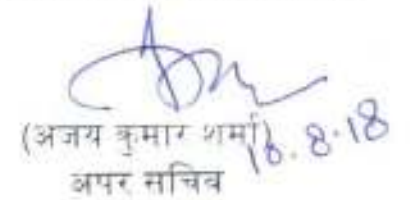 (अजय कुमार शर्मा)
18.8.18
अपर सचिव